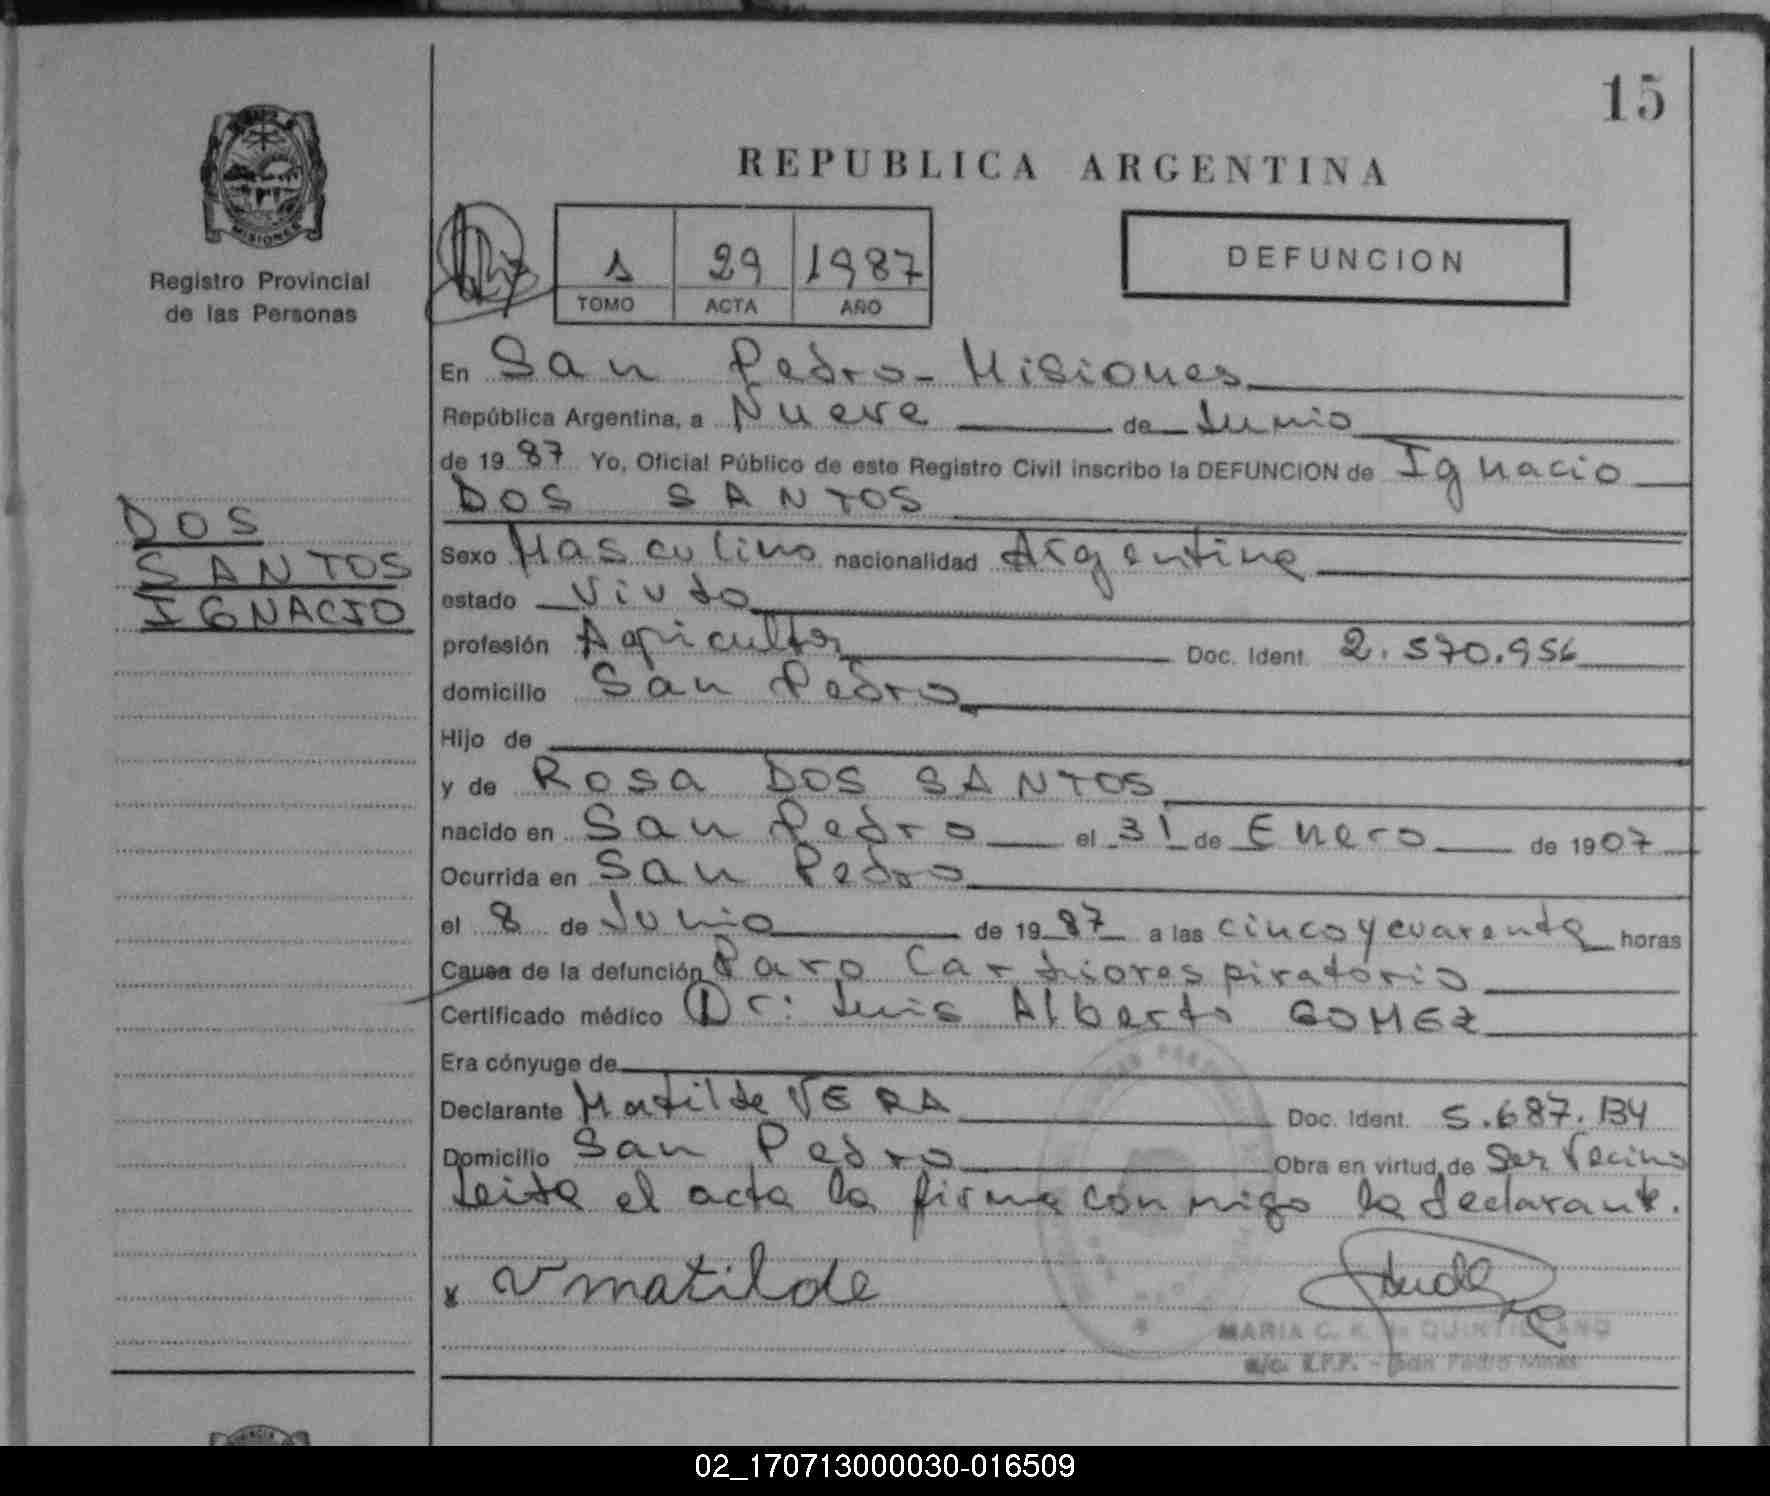 15
REPUBLICA ARGENTINA
MISIONES
Registro Provincial
de las Personas
1 29 1987
TOMO ACTA AÑO
DEFUNCION
En San Pedro - Misiones
República Argentina, a Nueve de Junio
de 1987 Yo, Oficial Público de este Registro Civil inscribo la DEFUNCION de Ignacio
DOS SANTOS
DOS
SANTOS
IGNACIO
Sexo Masculino nacionalidad Argentina
estado Viudo
profesión Agricultor Doc. Ident. 2.570.956
domicilio San Pedro
Hijo de
y de Rosa DOS SANTOS
nacido en San Pedro el 31 de Enero de 1907
Ocurrida en San Pedro
el 8 de Junio de 1987 a las cinco y cuarenta horas
Causa de la defunción Paro Cardiorespiratorio
Certificado médico Dr: Luis Alberto GOMEZ
Era cónyuge de
Declarante Matilde VERA Doc. Ident. 5.687.134
Domicilio San Pedro Obra en virtud de Ser Vecino
Leida el acta la firma conmigo la declarante.
x V matilde
MARIA C. K. de QUINTILIANO
a/c. R.P.P. - San Pedro Mnes
02_170713000030-016509